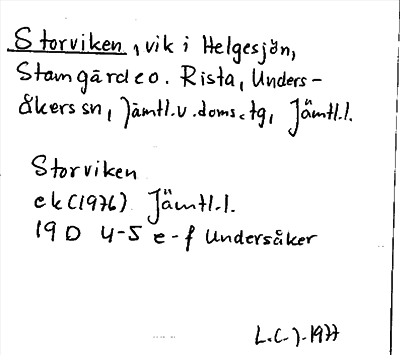 Storviken, vik i Helgesjön,
Stamgärde o. Rista, Unders-
åkers sn, Jämtl.v.doms.tg, Jämtl.l.
Storviken
ek (1976) Jämtl.l.
19 D 4-5 e-f Undersåker
L.C.J. 1977